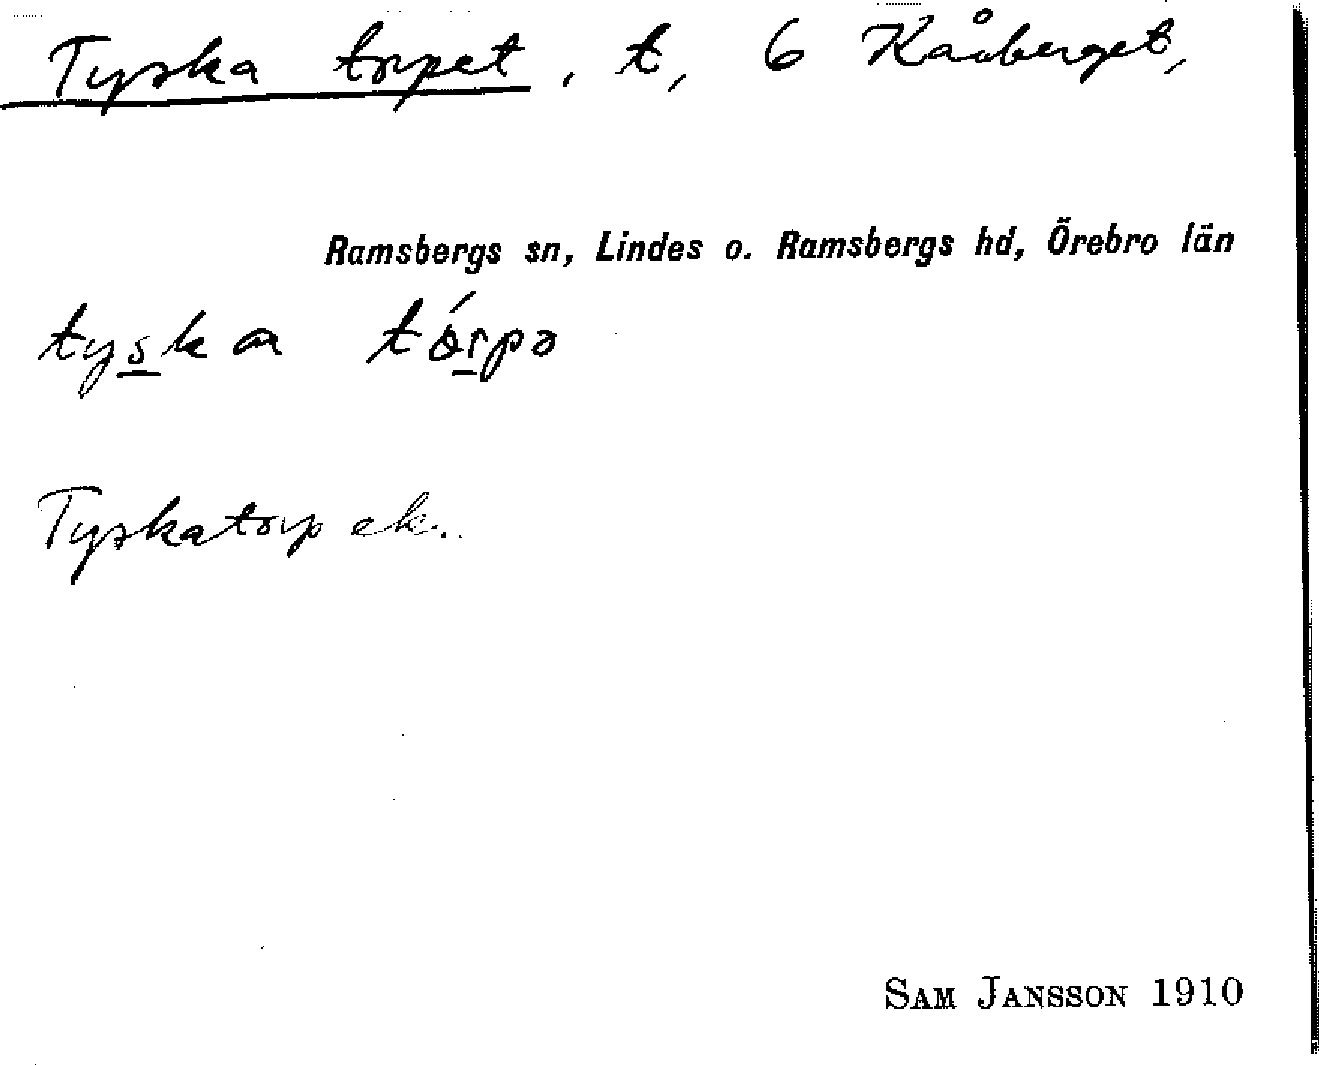 Tyska torpet, t, 6 Kåberget,
Ramsbergs sn, Lindes o. Ramsbergs hd, Örebro län
tyska tórpə
Tyskatorp ek..
SAM JANSSON 1910